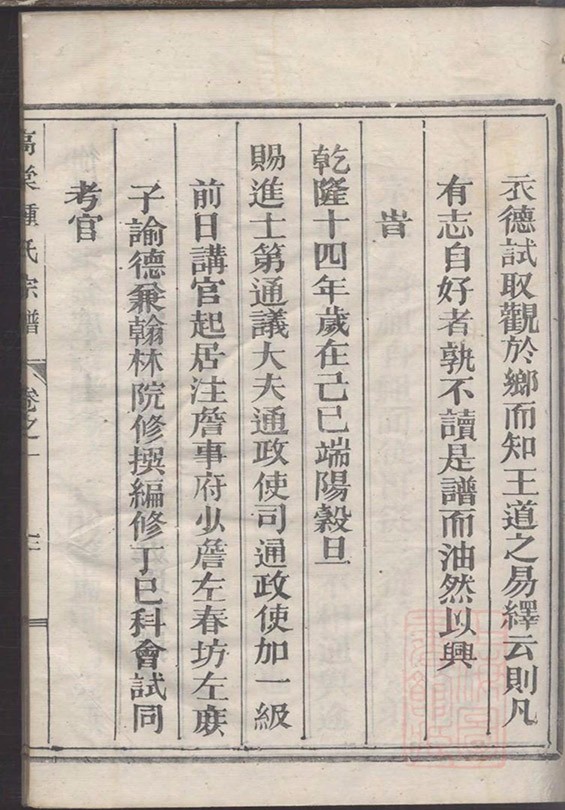 衣德試取觀於鄉而知王道之易繹云則凡
有志自好者孰不讀是譜而油然以興
旹
乾隆十四年歲在己巳端陽穀旦
賜進士第通議大夫通政使司通政使加一級
前日講官起居注詹事府少詹左春坊左庶
子諭德兼翰林院修撰編修丁巳科會試同
考官
鍾氏宗譜
卷之一